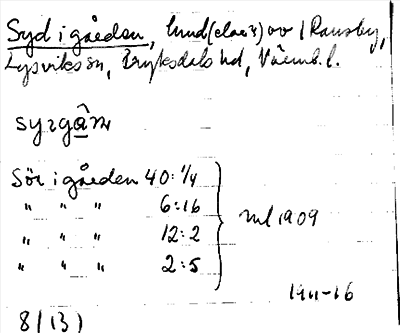 Syd i gården, lund(claes) av / Ransby,
Lysviks sn, Fryksdals hd, Värml. l.
syrgå̱n
Sör i gården 40:1/4
" " " 6:16
" " " 12:2
" " " 2:5
ml 1909
1911-16
8(13)